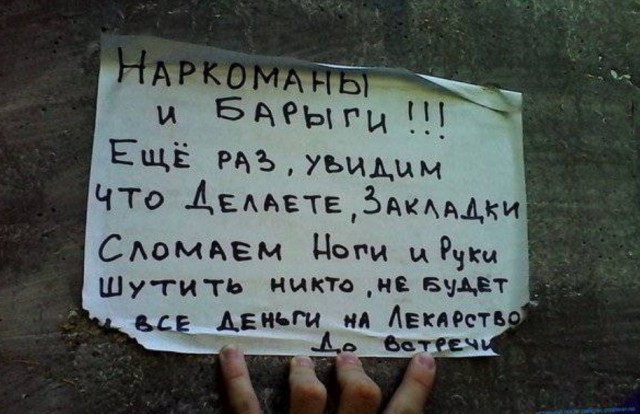 НАРКОМАНЫ
и БАРЫГИ !!!
ЕЩЁ РАЗ, УВИДИМ
ЧТО ДЕЛАЕТЕ, ЗАКЛАДКИ
СЛОМАЕМ Ноги и Руки
ШУТИТЬ НИКТО, НЕ БУДЕТ
ВСЕ ДЕНЬГИ НА ЛЕКАРСТВО
До ВСТРЕЧИ